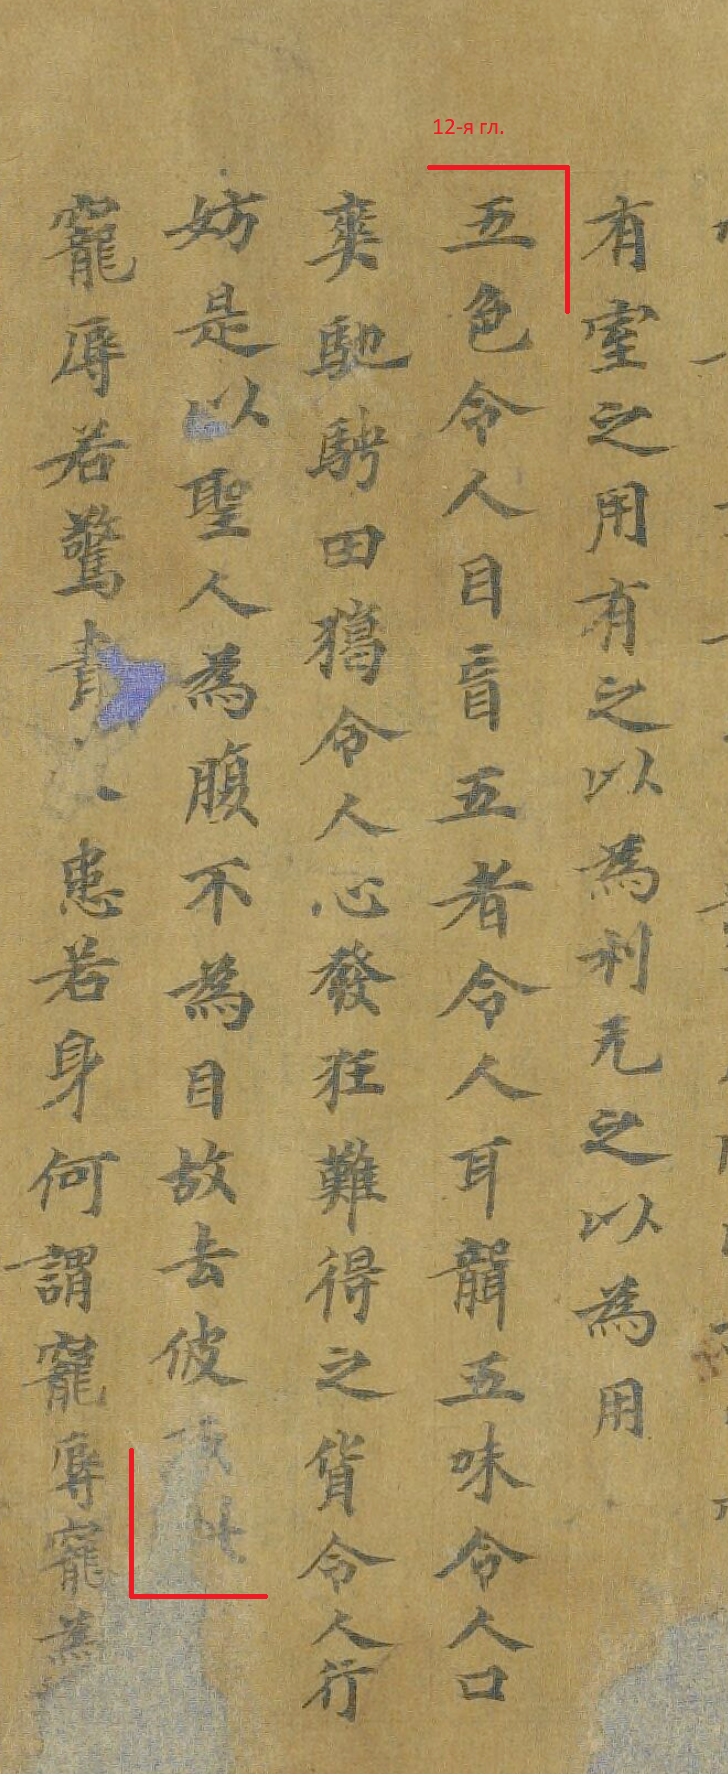 12-я гл.
有室之用有之以為利无之以為用
五色令人目盲五者令人耳聾五味令人口
爽馳騁田獦令人心發狂難得之貨令人行
妨是以聖人為腹不為目故去彼取此
寵辱若驚貴患若身何謂寵辱寵為